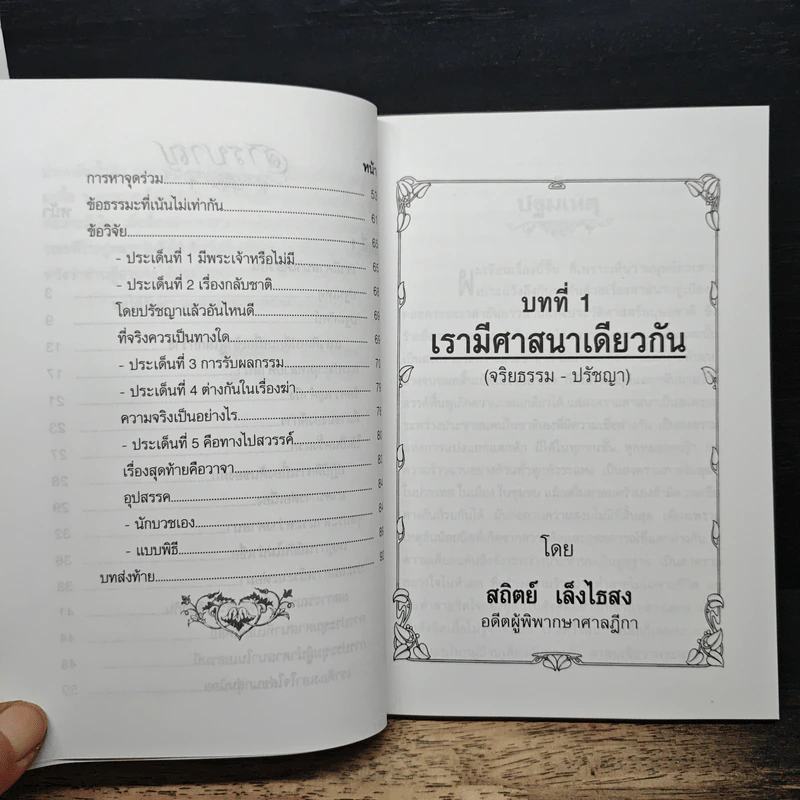 หน้า
การหาจุดร่วม............................53
ข้อธรรมะที่เน้นไม่เท่ากัน............................61
ข้อวิจัย............................65
- ประเด็นที่ 1 มีพระเจ้าหรือไม่มี............................65
- ประเด็นที่ 2 เรื่องกลับชาติ............................68
โดยปรัชญาแล้วอันไหนดี............................69
ที่จริงควรเป็นทางใด............................69
- ประเด็นที่ 3 การรับผลกรรม............................
- ประเด็นที่ 4 ต่างกันในเรื่องฆ่า............................
ความจริงเป็นอย่างไร............................
- ประเด็นที่ 5 คือทางไปสวรรค์............................
เรื่องสุดท้ายคือวาจา............................
อุปสรรค............................
- นักบวชเอง............................
- แบบพิธี............................
บทส่งท้าย............................
บทที่ 1
เรามีศาสนาเดียวกัน
(จริยธรรม - ปรัชญา)
โดย
สถิตย์ เล็งไธสง
อดีตผู้พิพากษาศาลฎีกา